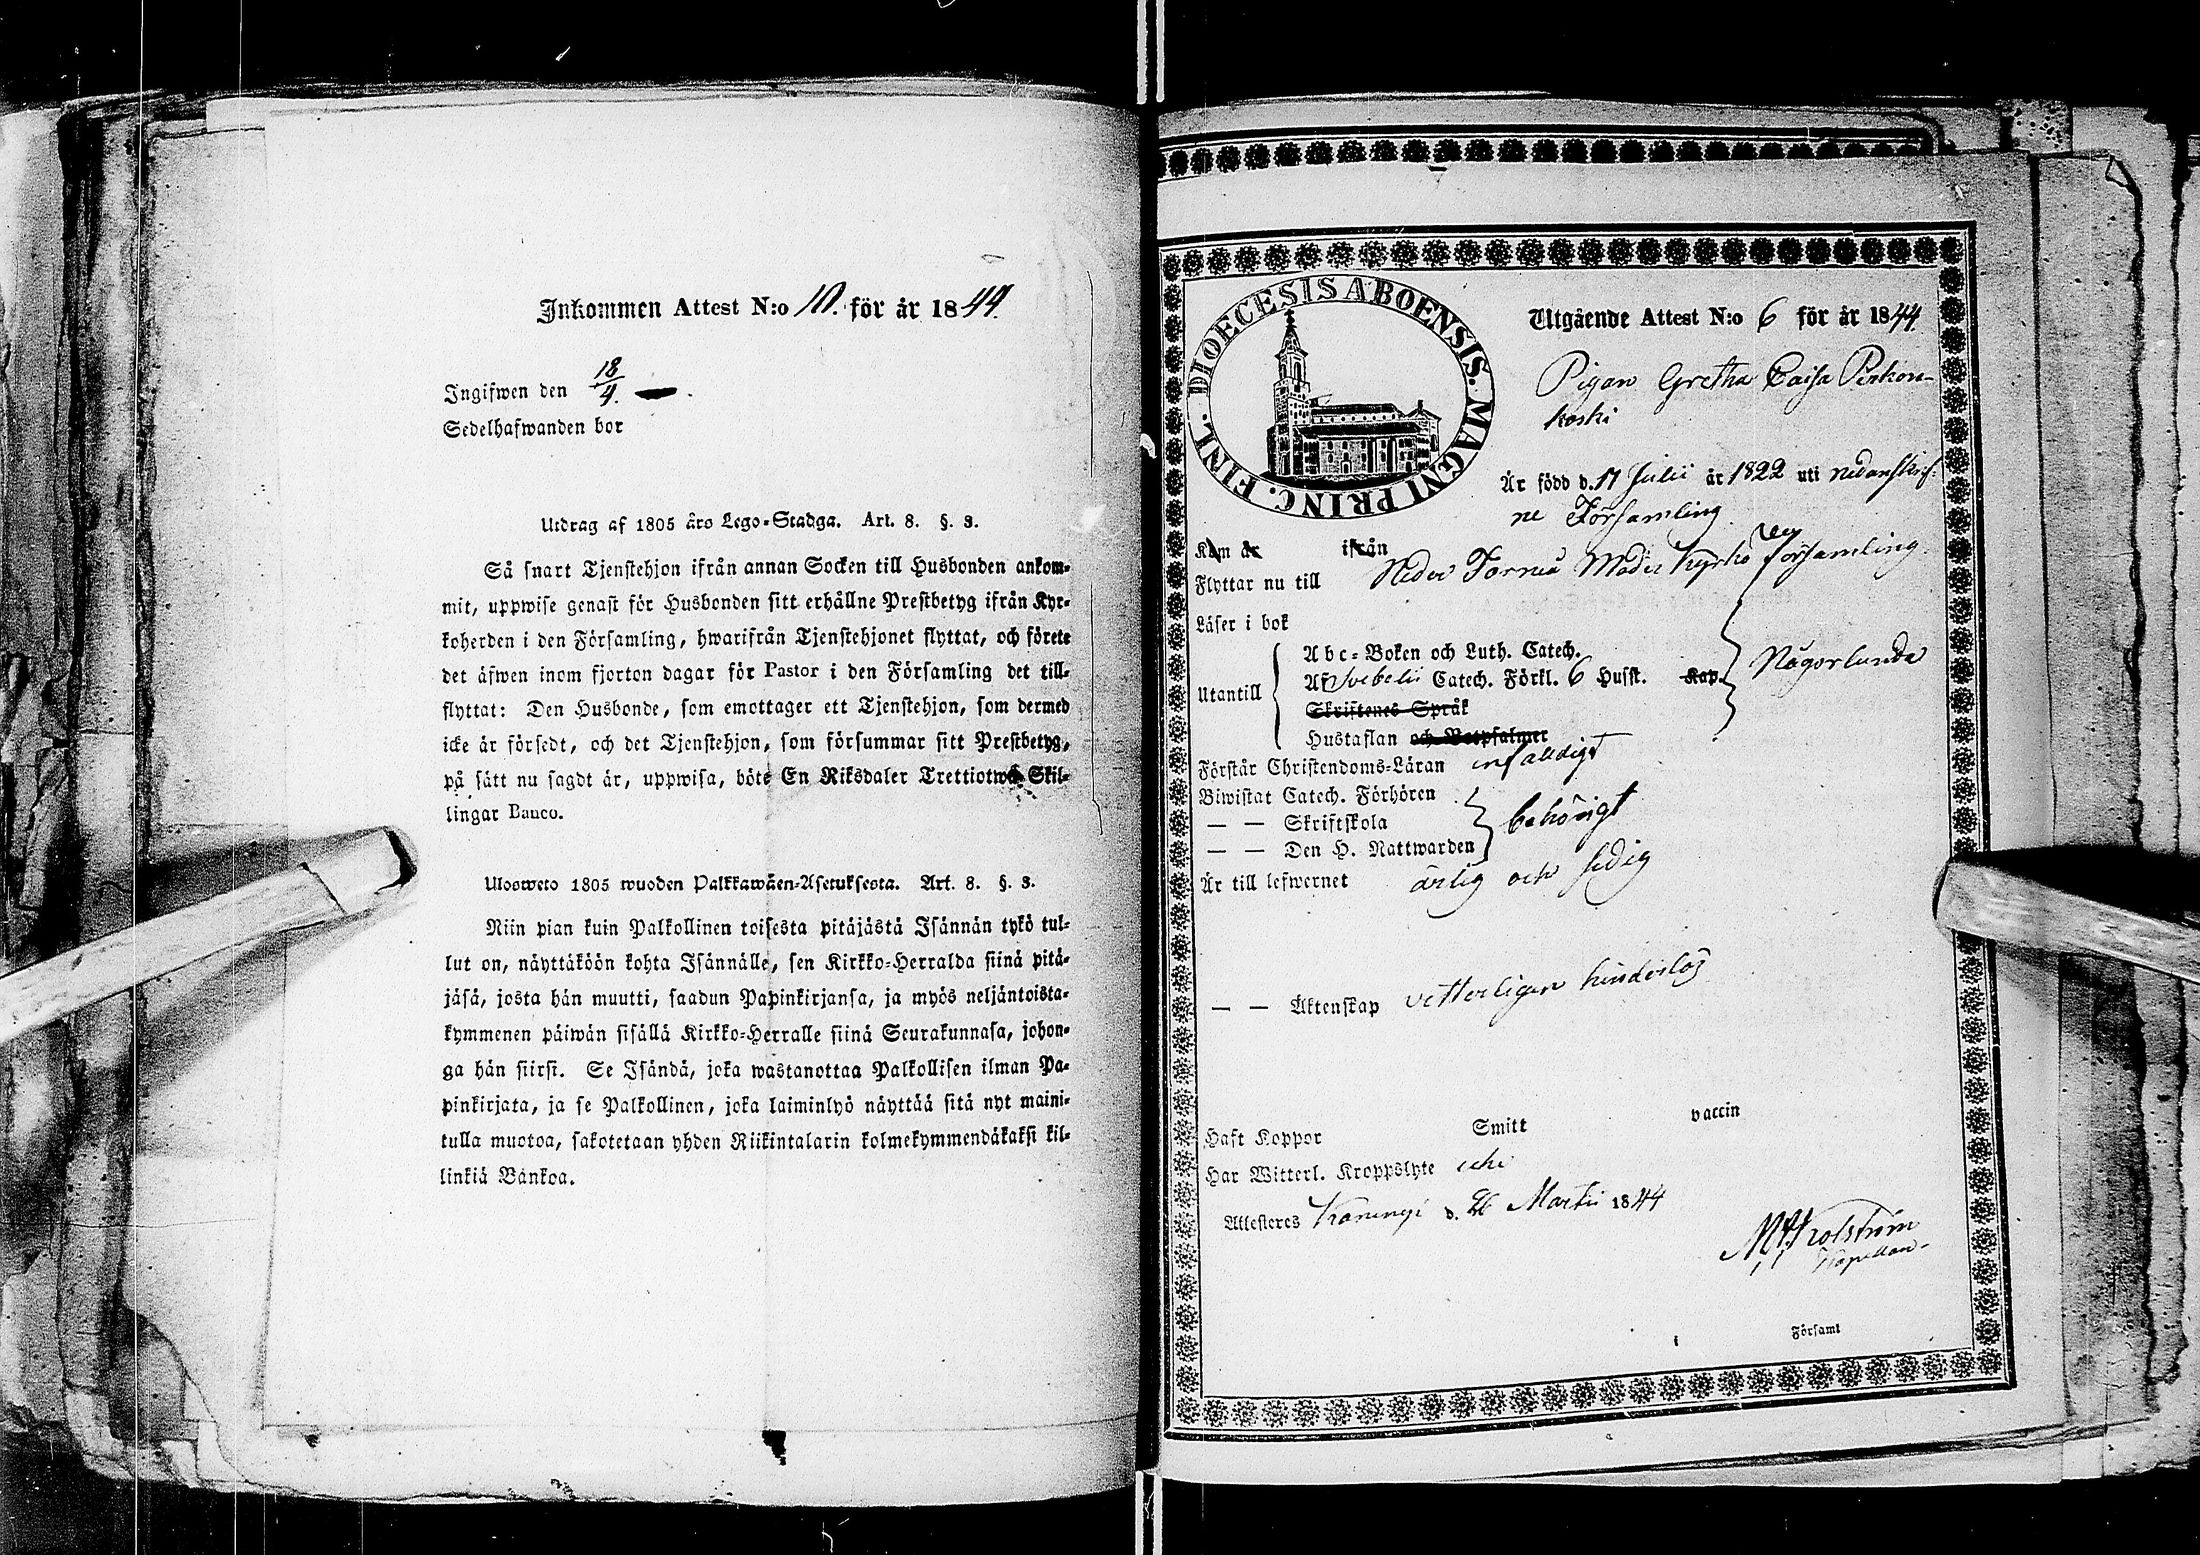 Inkommen Attest N:o 10. för år 1844.
Ingifwen den 18/4.
Sedelhafwanden bor
Utdrag af 1805 års Lego-Stadga. Art. 8. §. 3.
Så snart Tjenstehjon ifrån annan Socken till Husbonden ankom-
mit, uppwise genast för Husbonden sitt erhållne Prestbetyg ifrån Kyr-
koherden i den Församling, hwarifrån Tjenstehjonet flyttat, och förete
det äfwen inom fjorton dagar för Pastor i den Församling det till-
flyttat: Den Husbonde, som emottager ett Tjenstehjon, som dermed
icke är försedt, och det Tjenstehjon, som försummar sitt Prestbetyg,
på sätt nu sagdt är, uppwisa, böte En Riksdaler Trettiotwå Skil-
lingar Banco.
Ulosweto 1805 wuoden Palkkawäen-Asetuksesta. Art. 8. §. 3.
Niin pian kuin Palkollinen toisesta pitäjästä Isännän tykö tul-
lut on, näyttäköön kohta Isännälle, sen Kirkko-Herralda siinä pitä-
jäsä, josta hän muutti, saadun Papinkirjansa, ja myös neljäntoista-
kymmenen päiwän sisällä Kirkko-Herralle siinä Seurakunnasa, johon-
ga hän siirsi. Se Isändä, joka wastanottaa Palkollisen ilman Pa-
pinkirjata, ja se Palkollinen, joka laiminlyö näyttää sitä nyt maini-
tulla muotoa, sakotetaan yhden Riikintalarin kolmekymmendäkaksi kil-
linkiä Bankoa.
DIOECESIS ABOENSIS. MAGNI PRINC. FINL.
Utgående Attest N:o 6 för år 1844
Pigan Gretha Caisa Pirkon-
koski
Är född d. 17 Julii år 1822 uti nedanskrif-
ne Församling
Kom år ifrån
Flyttar nu till Neder Torneå Moder Kyrko Församling.
Läser i bok
Utantill
Abc-Boken och Luth. Catech.
Af Svebelii Catech. Förkl. 6 Husst. Kap. Någorlunda
Skriftenes Språk
Hustaflan och Botpsalmer
Förstår Christendoms-Läran enfaldigt
Biwistat Catech. Förhören
— — Skriftskola behörigt
— — Den H. Nattwarden
Är till lefwernet ärlig och sedig
— — Äktenskap vetterligen hinderlös
Haft Koppor Smitt vaccin
Har Witterl. Kroppslyte icke
Attesteres Karungi d. 26 Martii 1844
Kapellan
Församl